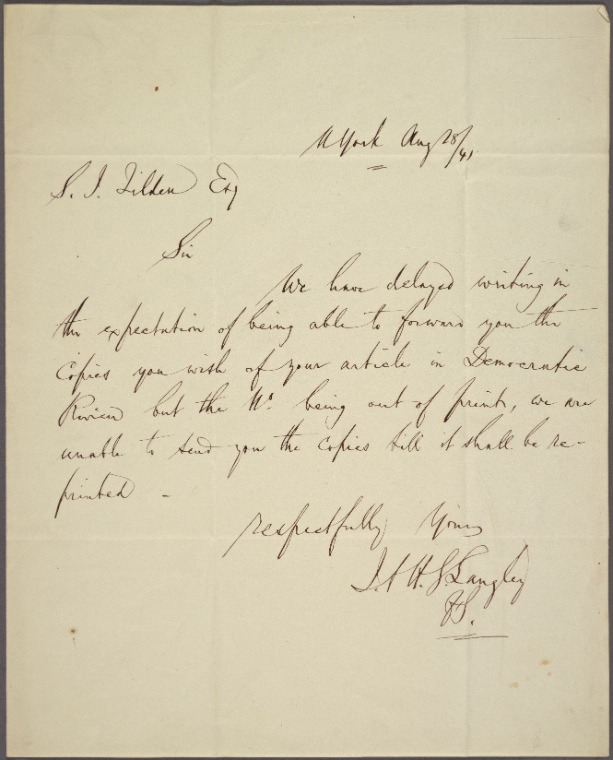 N York Aug 28/41
S. J. Tilden Esq
Sir
We have delayed writing in
the expectation of being able to forward you the
Copies you wish of your article in Democratic
Review but the No. being out of print, we are
unable to send you the Copies till it shall be re-
printed -
respectfully Yours
J. & H. G. Langley